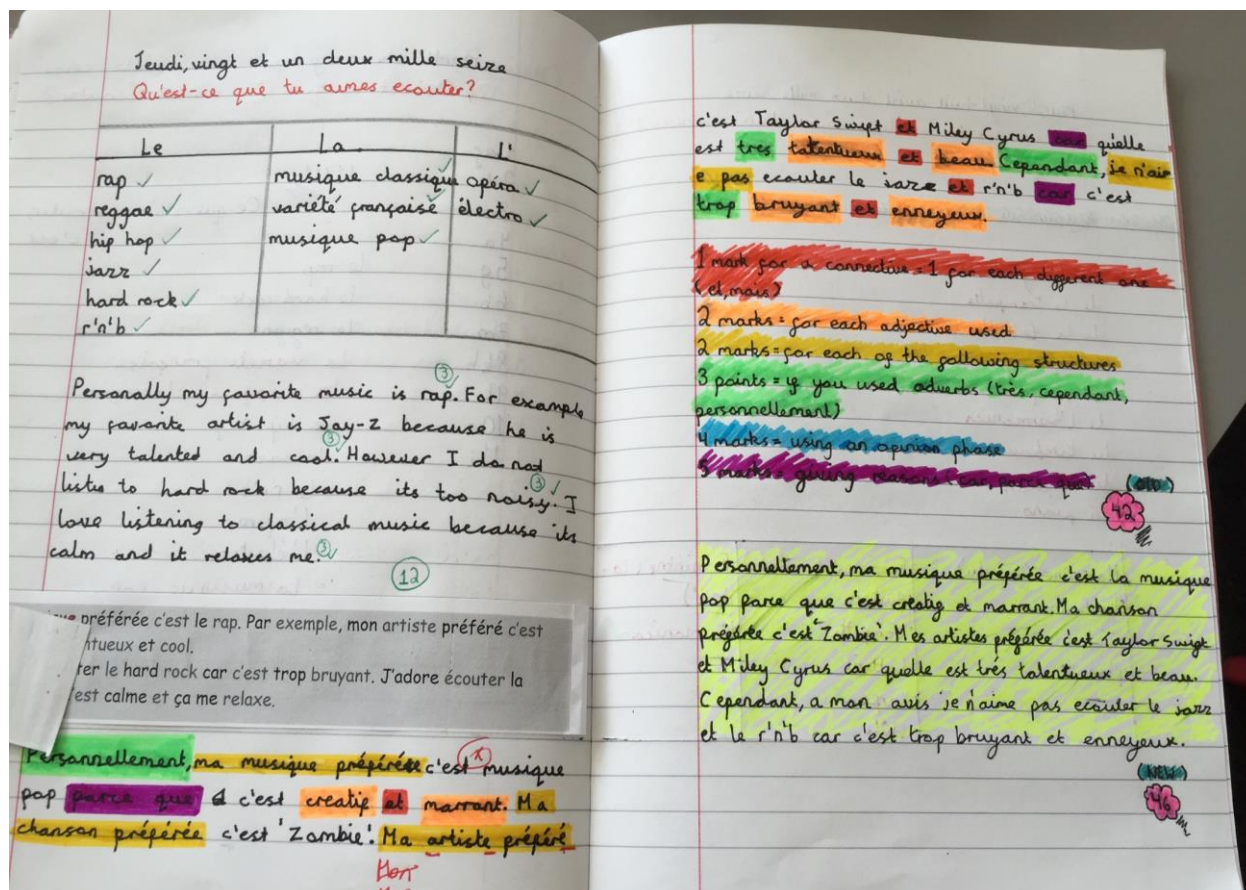 Jeudi, vingt et un deux mille seize
Qu'est-ce que tu aimes ecouter?
Le La L'
rap musique classique opéra
reggae variété française électro
hip hop musique pop
jazz
hard rock
r'n'b
3
Personally my favorite music is rap. For example
my favorite artist is Jay-Z because he is
3
very talented and cool. However I do not
3
listen to hard rock because its too noisy. I
love listening to classical music because its
calm and it relaxes me. 3
12
préférée c'est le rap. Par exemple, mon artiste préféré c'est
ntueux et cool.
rer le hard rock car c'est trop bruyant. J'adore écouter la
est calme et ça me relaxe.
Personnellement, ma musique préférée c'est musique
pop parce que c'est creatif et marrant. Ma
chanson préférée c'est 'Zombie'. Ma artiste préféré
Mon
c'est Taylor Swift et Miley Cyrus car qu'elle
est tres talentueux et beau. Cependant, je n'aim
e pas ecouter le jazz et r'n'b car c'est
trop bruyant et enneyeux.
1 mark for a connective = 1 for each different one
(et, mais)
2 marks = for each adjective used
2 marks = for each of the following structures
3 points = if you used adverbs (très, cependant,
personnellement)
4 marks = using an opinion phase
5 marks = giving reasons (car, parce que)
(OLD)
42
Personnellement, ma musique préférée c'est la musique
pop parce que c'est creatif et marrant. Ma chanson
préférée c'est 'Zombie'. Mes artistes préférée c'est Taylor Swift
et Miley Cyrus car quelle est trés talentueux et beau.
Cependant, a mon avis je n'aime pas ecouter le jazz
et le r'n'b car c'est trop bruyant et enneyeux.
(NEW)
46